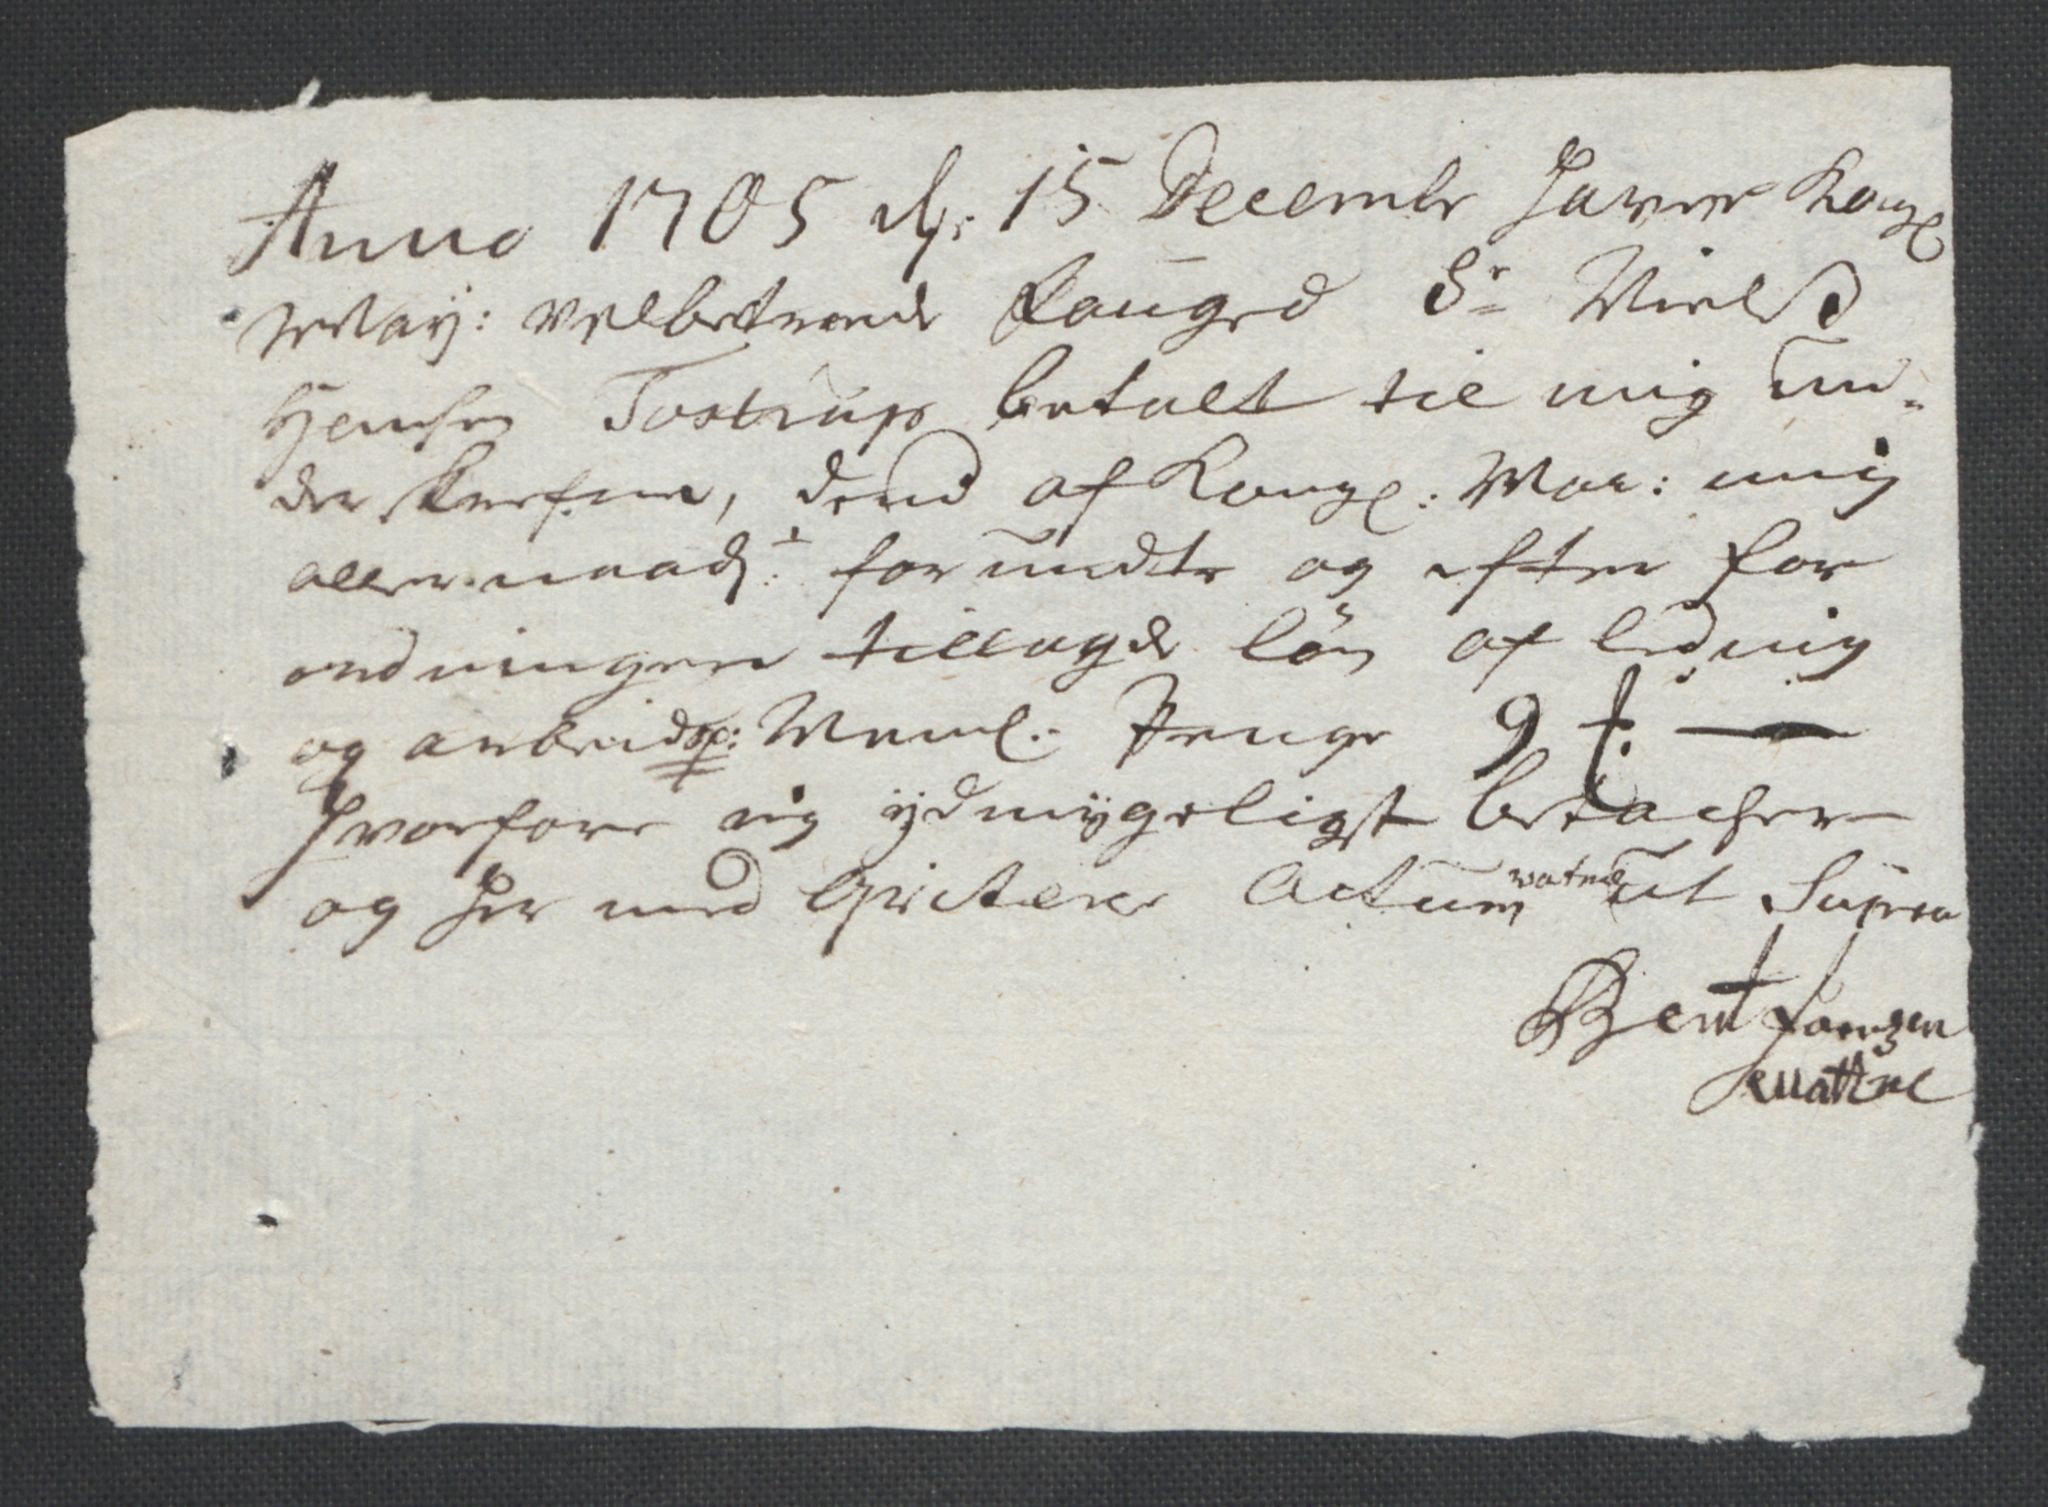 Anno 1705 d: 15 Decembr haver Kongl
May: velbetroede Fouged Sr Niels
Hansen Tostrup betalt til mig un-
der skrefne, dend af Kongl: Maa: mig
allernaadst: forundte og efter for
ordningen tillagde løn af leding
og arbeidsp: Neml. Penge 9
hvorfore ieg ydmygeligst betacher
og her med qvitterer Actum vatne ut Supra
Bent Joenzen
Wattne